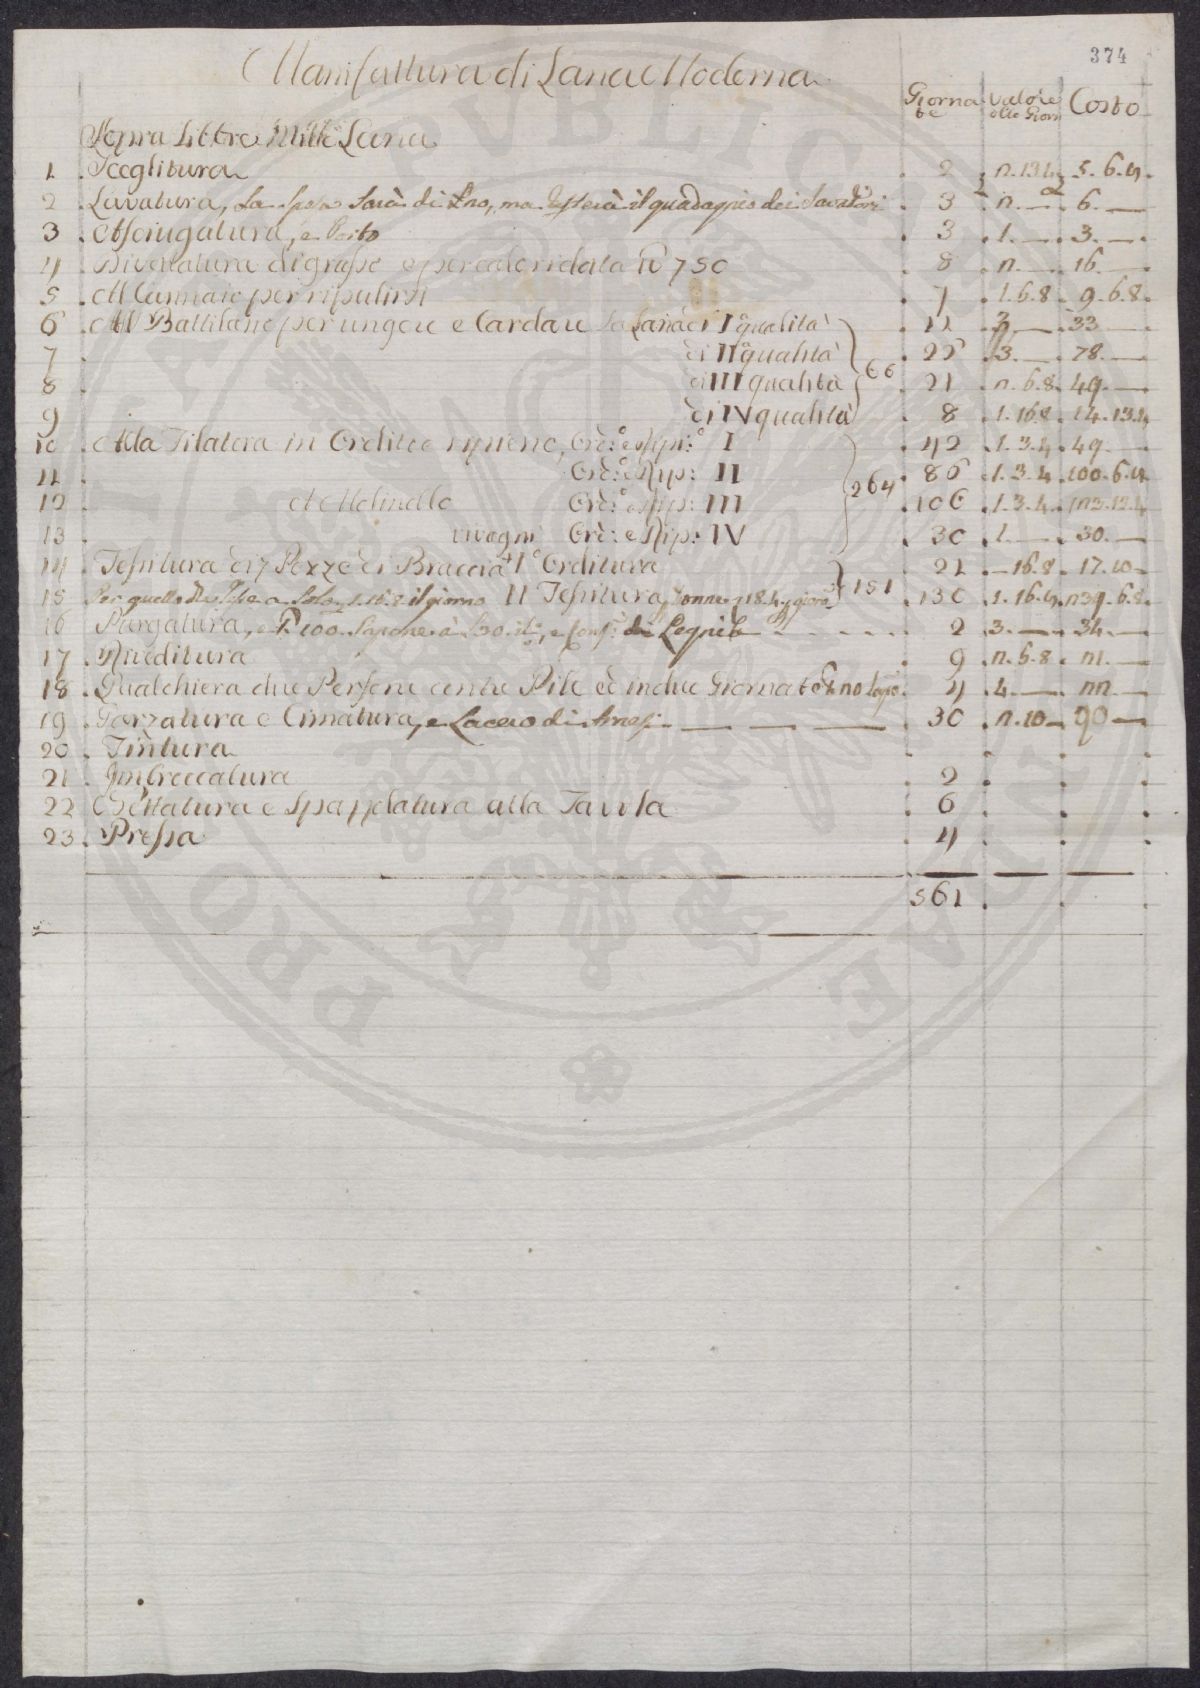 374
Manifattura di Lana Moderna
Giornate Valore delle Giorn Costo
Sopra Libbre Mille Lana
1 Sceglitura 2 n.13.4 5.6.n.
2 Lavatura, La spesa sarà di più, ma resterà il guadagnio dei Lavatori 3 n. — 6. —
3 Asciugatura, e Porto 3 1. — 3. —
4 Divettatura di grasse e per calo ridotta lb 750 8 n. — 16. —
5 Al Cannaio per ripulirsi 7 1.6.8 9.6.8.
6 Al Battilano per ungere e Cardare La Lana di I qualità 11 3. — 33
7 di II qualità 26 3. — 78. —
8 di III qualità 66 21 n.6.8. 49. —
9 di IV qualità 8 1.16.8 14.13.4
10 Alla Filatora in Ordito e ripieno, Ord:º e Rip:º I 42 1.3.4. 49. —
11 Ord:º e Rip: II 86 1.3.4 100.6.n.
12 A Molinello Ord:º e Rip: III 264 106 1.3.4. 1n3.13.4
13 vivagni Ord: e Rip: IV 30 1. — 30. —
14 Tessitura di 7 Pezze di Braccia I Orditura 21 — 16.8 17.10 —
15 Per quello che tesse a Solo, 1.16.8 il giorno II Tessitura, 151 130 1.16.n. n39.6.8.
16 Purgatura, e lb 100. Sapone à 2 3. — 34. —
17 Riveditura 9 n.6.8. n1. —
18 Qualchiera due Persone centu Pile ed in due Giornate 4 4. — nn —
19 Garzatura e Cimatura, e Lacero di Arnesi — — — 30 n.10 — 90 —
20 Tintura
21 Imbroccatura 2
22 Spappolatura alla Tavola 6
23 Pressa 4
561